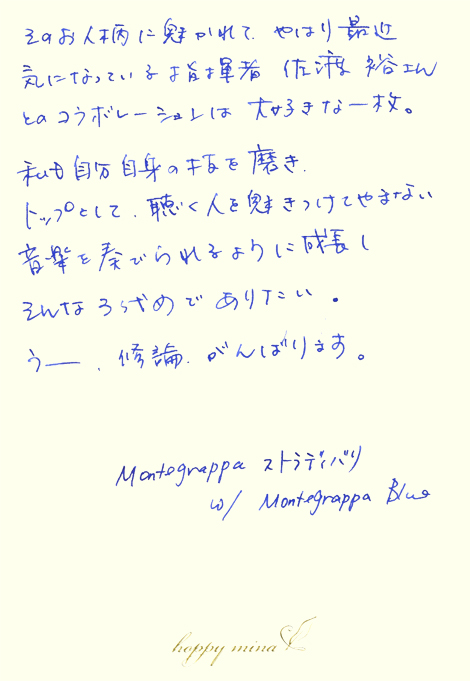 そのお人柄に魅かれて、やはり最近
気になっている指揮者 佐渡 裕さん
とのコラボレーションは 大好きな一枚。
私も自分自身の技を磨き、
トップとして、聴く人を魅きつけてやまない
音楽を奏でられるように成長し
そんな ろくでありたい。
うー、修論、がんばります。
Montegrappa ストラディバリ
w/ Montegrappa Blue
happy mina